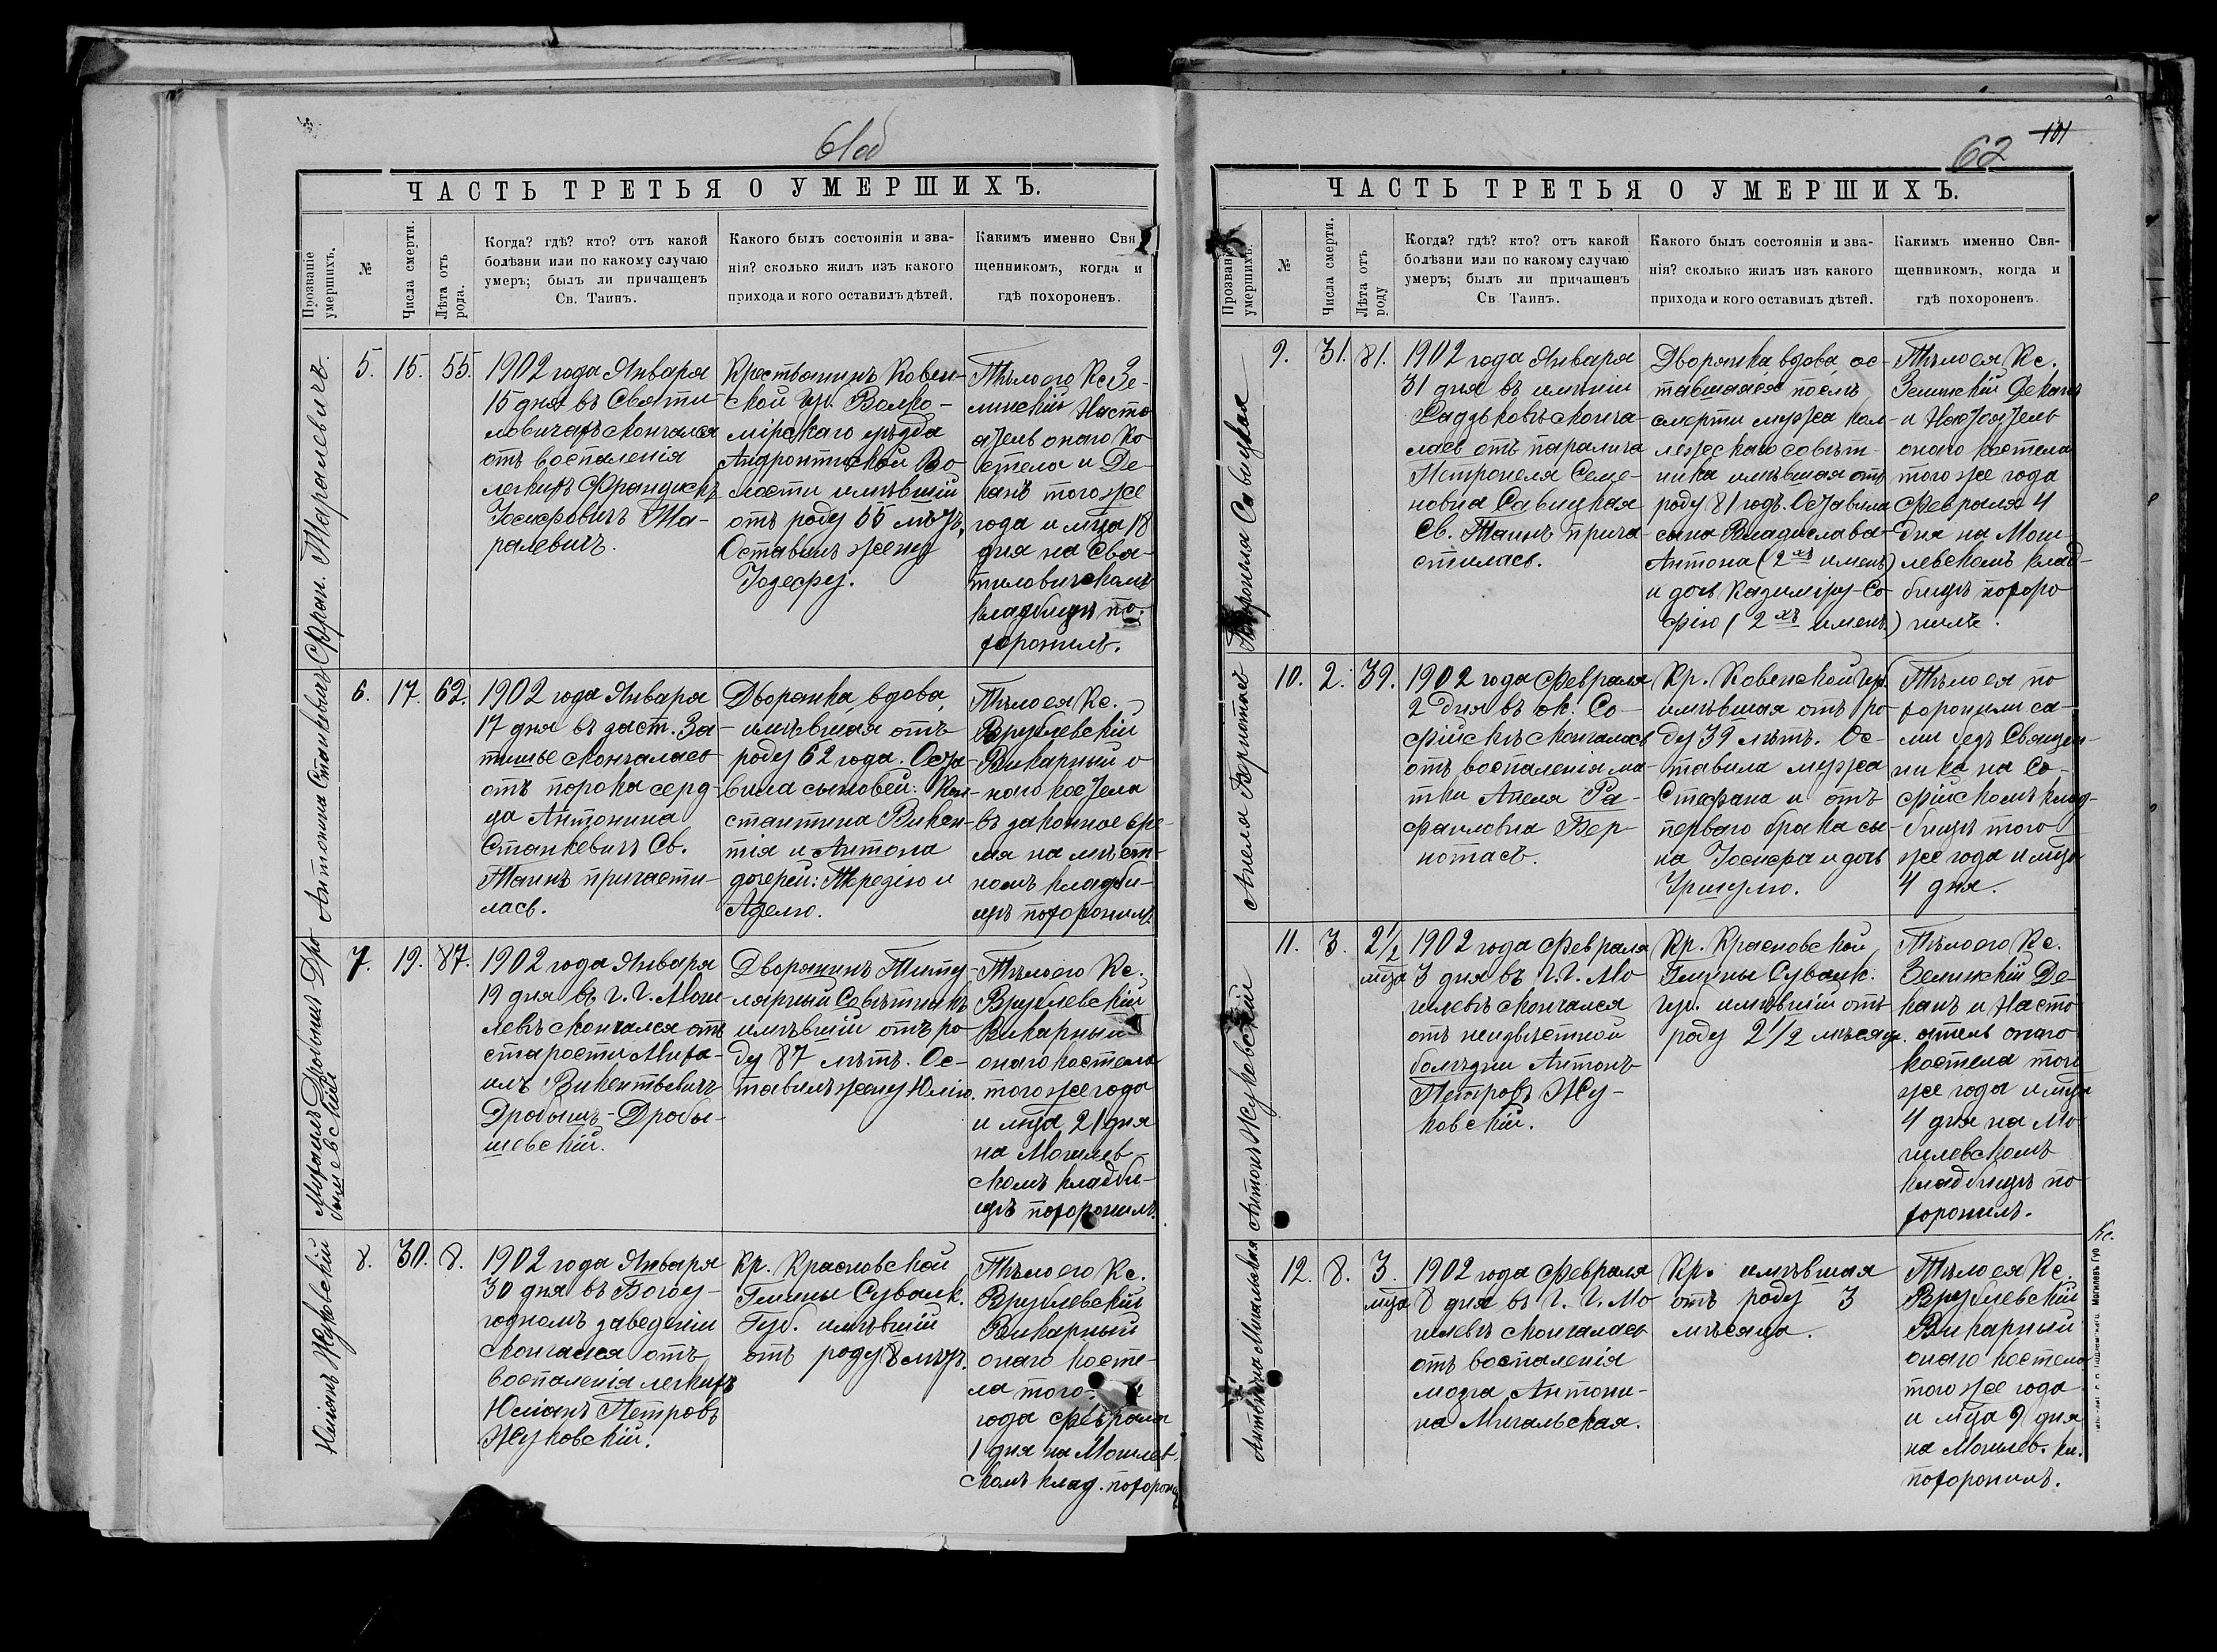 61об
ЧАСТЬ ТРЕТЬЯ О УМЕРШИХЪ.
Прозваніе умершихъ.
№
Числа смерти.
Лѣта отъ рода.
Когда? гдѣ? кто? отъ какой
болѣзни или по какому случаю
умеръ; былъ ли причащенъ
Св. Таинъ.
Какого былъ состоянія и зва-
нія? сколько жилъ изъ какого
прихода и кого оставилъ дѣтей.
Какимъ именно Свя
щенникомъ, когда и
гдѣ похороненъ.
Фран. Таралевичъ.
5.
15.
55.
1902 года Января
15 дня въ Святи-
ловичахъ скончался
отъ воспаленія
легкихъ Францискъ
Іосифовичъ Та-
ралевичъ.
Крестьянинъ Ковен-
ской гу. Вилко-
мірскаго уѣзда
Андронтишкой Во-
лости имѣвшій
отъ роду 55 лѣтъ.
Оставилъ жену
Іозефу.
Тѣло его Кс Зе-
линскій Насто
ятель онаго Ко
стела и Де-
канъ того же
года и мца 18
дня на Свя-
тиловичскомъ
кладбищѣ по-
хоронилъ.
Антонина Станкевичъ
6.
17.
62.
1902 года Января
17 дня въ заст. За-
тишье скончалась
отъ порока серд-
ца Антонина
Станкевичъ Св.
Таинъ причасти-
лась.
Дворянка, вдова,
имѣвшая отъ
роду 62 года. Оста-
вила сыновей: Кон-
стантина Викен-
тія и Антона
дочерей: Терезію и
Аделю.
Тѣло ея Кс.
Врублевскій
Викарный о
наго костела
въ законное вре-
мя на мѣст-
номъ кладби-
щѣ похоронилъ
Михаилъ Дробышъ Дро
бышевскій
7.
19.
87.
1902 года Января
19 дня въ г. г. Моги-
левѣ скончался отъ
старости Миха-
илъ Викентьевичъ
Дробышъ-Дробы-
шевскій.
Дворянинъ Титу-
лярный Совѣтникъ
имѣвшій отъ ро-
ду 87 лѣтъ. Ос-
тавилъ жену Юлію.
Тѣло его Кс.
Врублевскій
Викарный
онаго костела
того же года
и мца 21 дня
на Могилев-
скомъ кладби-
щѣ похоронилъ.
Юліанъ Жуковскій
8.
30.
8.
1902 года Января
30 дня въ Богоу-
годномъ заведеніи
скончался отъ
воспаленія легкихъ
Юліанъ Петровъ
Жуковскій.
Кр. Красновской
Гмины Сувалк.
Губ. имѣвшій
отъ роду 8 лѣтъ.
Тѣло его Кс.
Врублевскій
Викарный
онаго косте-
ла того-
года Февраля
1 дня на Могилев-
скомъ клад. похорони
62
101
ЧАСТЬ ТРЕТЬЯ О УМЕРШИХЪ.
Прозваніе умершихъ.
№
Числа смерти.
Лѣта отъ роду
Когда? гдѣ? кто? отъ какой
болѣзни или по какому случаю
умеръ; былъ ли причащенъ
Св Таинъ.
Какого былъ состоянія и зва-
нія? сколько жилъ изъ какого
прихода и кого оставилъ дѣтей.
Какимъ именно Свя-
щенникомъ, когда и
гдѣ похороненъ.
Петронеля Савицкая
9.
31.
81.
1902 года Января
31 дня въ имѣніи
сконча-
лась отъ паралича
Петронеля Семе-
новна Савицкая
Св. Таинъ прича-
стилась.
Дворянка вдова, ос-
тавшаяся послѣ
смерти мужа кол-
лежскаго совѣт-
ника имѣвшая отъ
роду 81 годъ. Оставила
сына Владислава-
Антона (2хъ именъ)
и дочь Казиміру-Со-
фію (2хъ именъ.)
Тѣло ея Кс.
Зелинскій Деканъ
и Настоятель
онаго костела
того же года
Февраля 4
дня на Моги-
левскомъ клад-
бищѣ похоро
нилъ.
Анеля Бернотасъ
10.
2.
39.
1902 года Февраля
2 дня въ ок. Со-
фійскѣ скончалась
отъ воспаленія ма-
тки Анеля Ра-
фаиловна Бер-
нотасъ.
Кр. Ковенской губ.
имѣвшая отъ ро-
ду 39 лѣтъ. Ос-
тавила мужа
Стефана и отъ
перваго брака сы-
на Іосифа и дочь
Уршулю.
Тѣло ея по
хоронили са-
ми безъ Священ-
ника на Со-
фійскомъ клад-
бищѣ того
же года и мца
4 дня.
Антонъ Жуковскій
11.
3.
2½
мца
1902 года Февраля
3 дня въ г. г. Мо
гилевѣ скончался
отъ неизвѣстной
болѣзни Антонъ
Петровъ Жу-
ковскій.
Кр. Красновской
Гмины Сувалк.
гу. имѣвшій отъ
роду 2½ мѣсяца.
Тѣло его Кс.
Зелинскій Де-
канъ и Насто
ятель онаго
костела того
же года и мца
4 дня на Мо-
гилевскомъ
кладбищѣ по
хоронилъ.
Антонина Михальская
12.
8.
3.
мца
1902 года Февраля
8 дня въ г. г. Мо
гилевѣ скончалась
отъ воспаленія
мозга Антони-
на Михальская.
Кр. имѣвшая
отъ роду 3
мѣсяца.
Тѣло ея Кс.
Врублевскій
Викарный
онаго костела
того же года
и мца 9 дня
на Могилев. кл.
похоронилъ.
Кс.
Могилевъ Губ